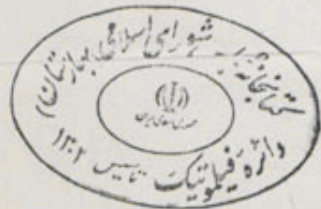 کتابخانه شورای اسلامی (بهارستان)
جمهوری اسلامی ایران
دائره فیلموتیک
۱۳۰۲